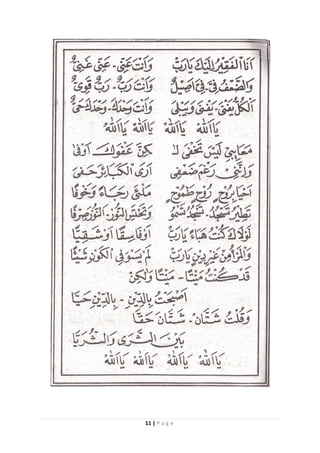 أَنَا الْفَقِيرُ إِلَيْكَ يَارَبِّ وَأَنْتَ عَنِّي - عَنِّي غَنِيٌّ
وَالضَّعْفُ فِيَّ - فِيَّ أَصِيلٌ وَأَنْتَ رَبٌّ - رَبٌّ قَوِيٌّ
الْكُلُّ يَفْنَى - يَفْنَى وَيَبْلَى وَأَنْتَ وَحْدَكَ - وَحْدَكَ حَيٌّ
يَا اللهُ يَا اللهُ يَا اللهُ يَا اللهُ
لَيْسَ تَخْفَى لا كِنَّ عَفْوَكَ أَوْفَى
وَإِنَّنِي رَغْمَ ضَعْفِي أَرَى الْكَبَائِرَ
أَحْيَا بِرُوحٍ رُوحٍ طَمُوحٍ رَجَاءً وَخَوْفًا
تَطِيرُ تَسْجُدُ - تَسْجُدُ وَتَحْتَسِي النُّورَ - النُّورَ صِرْفًا
لَوْلَاكَ كُنْتُ هَبَاءً يَارَبِّ أَوْ فَاسِقًا أَوْ شَقِيًّا
وَالْمَرْءُ مِنْ غَيْرِ دِينٍ يَارَبِّ لَمْ يَسْوَ فِي الْكَوْنِ شَيْئًا
قَدْ كُنْتُ مَيْتًا - مَيْتًا وَلٰكِنْ
أَصْبَحْتُ بِالدِّينِ - بِالدِّينِ حَيًّا
وَقُلْتُ شَتَّانَ - شَتَّانَ حَقًّا
بَيْنَ الثَّرَى وَالثُّرَيَّا
يَا اللهُ يَا اللهُ يَا اللهُ يَا اللهُ
11 | P a g e